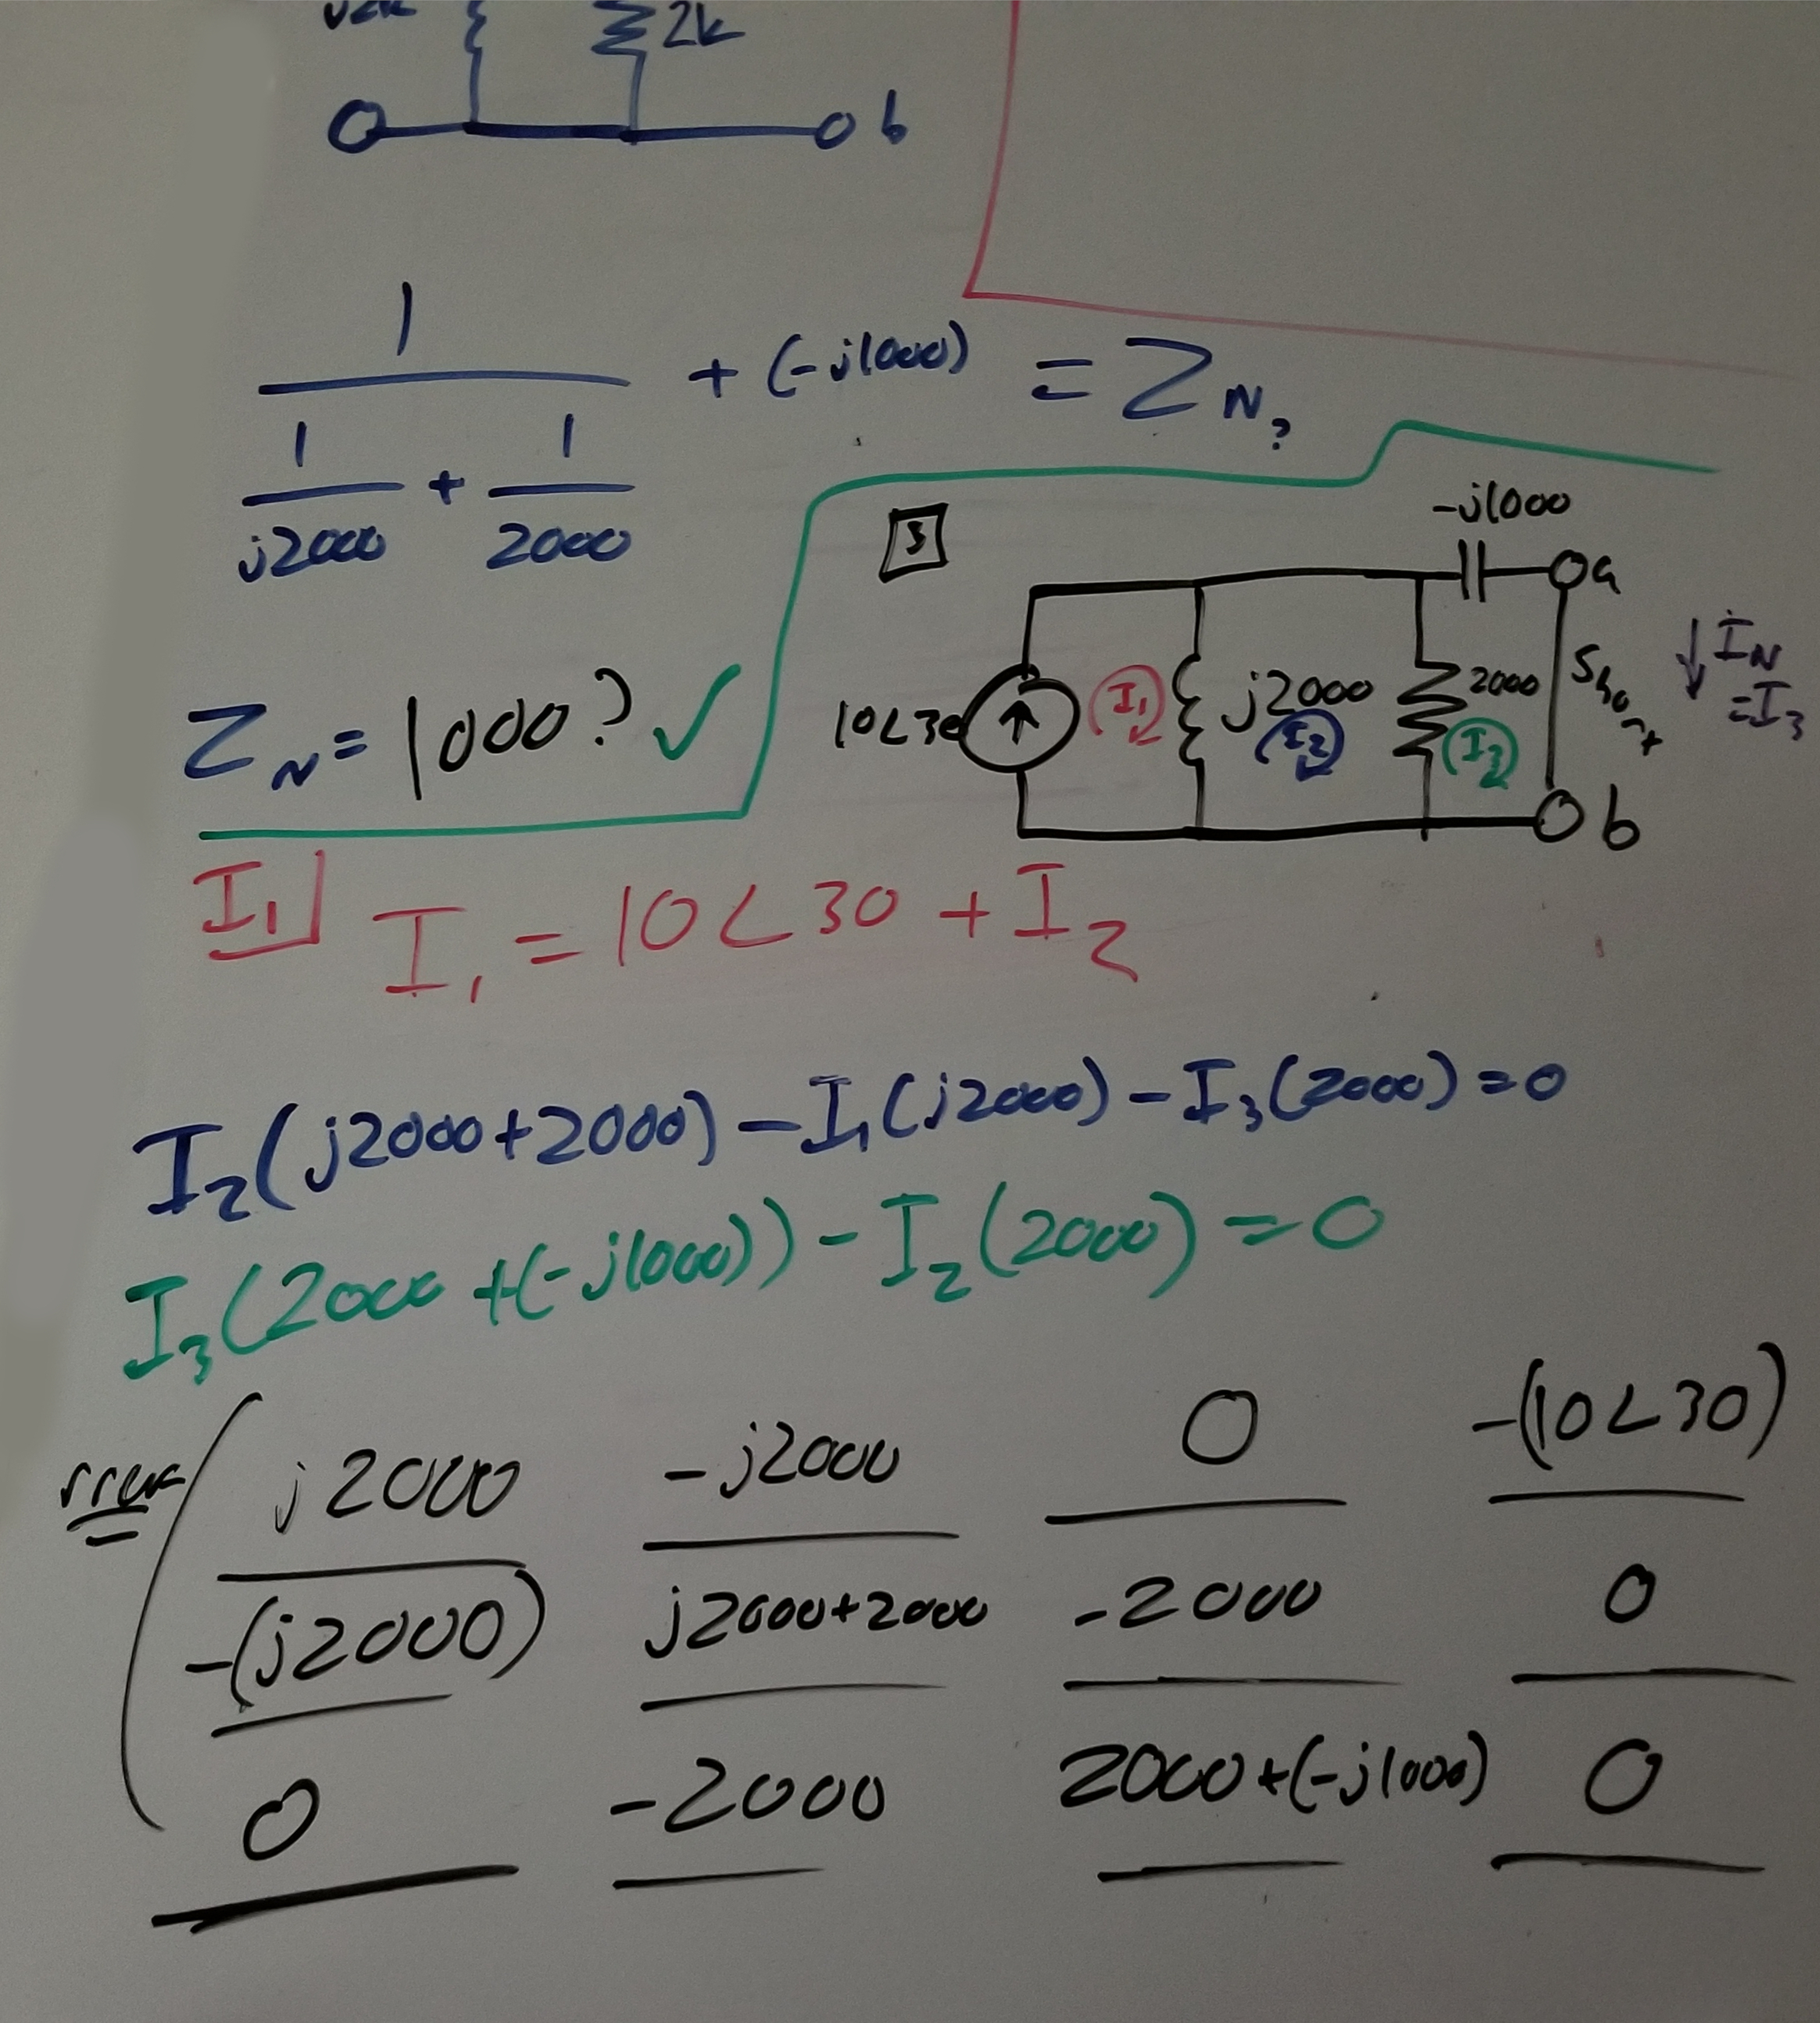 2k
b
1
+ (-j1000) = Z N?
1 + 1
j2000 2000
3
-j1000
a
10<30
I1
j2000
I2
2000
I3
Short
↓ IN
=I3
b
ZN = 1000? ✓
I1 I1 = 10<30 + I2
I2(j2000+2000) - I1(j2000) - I3(2000) = 0
I3(2000 +(-j1000)) - I2(2000) = 0
rref ( j2000 -j2000 0 -(10<30)
-(j2000) j2000+2000 -2000 0
0 -2000 2000+(-j1000) 0